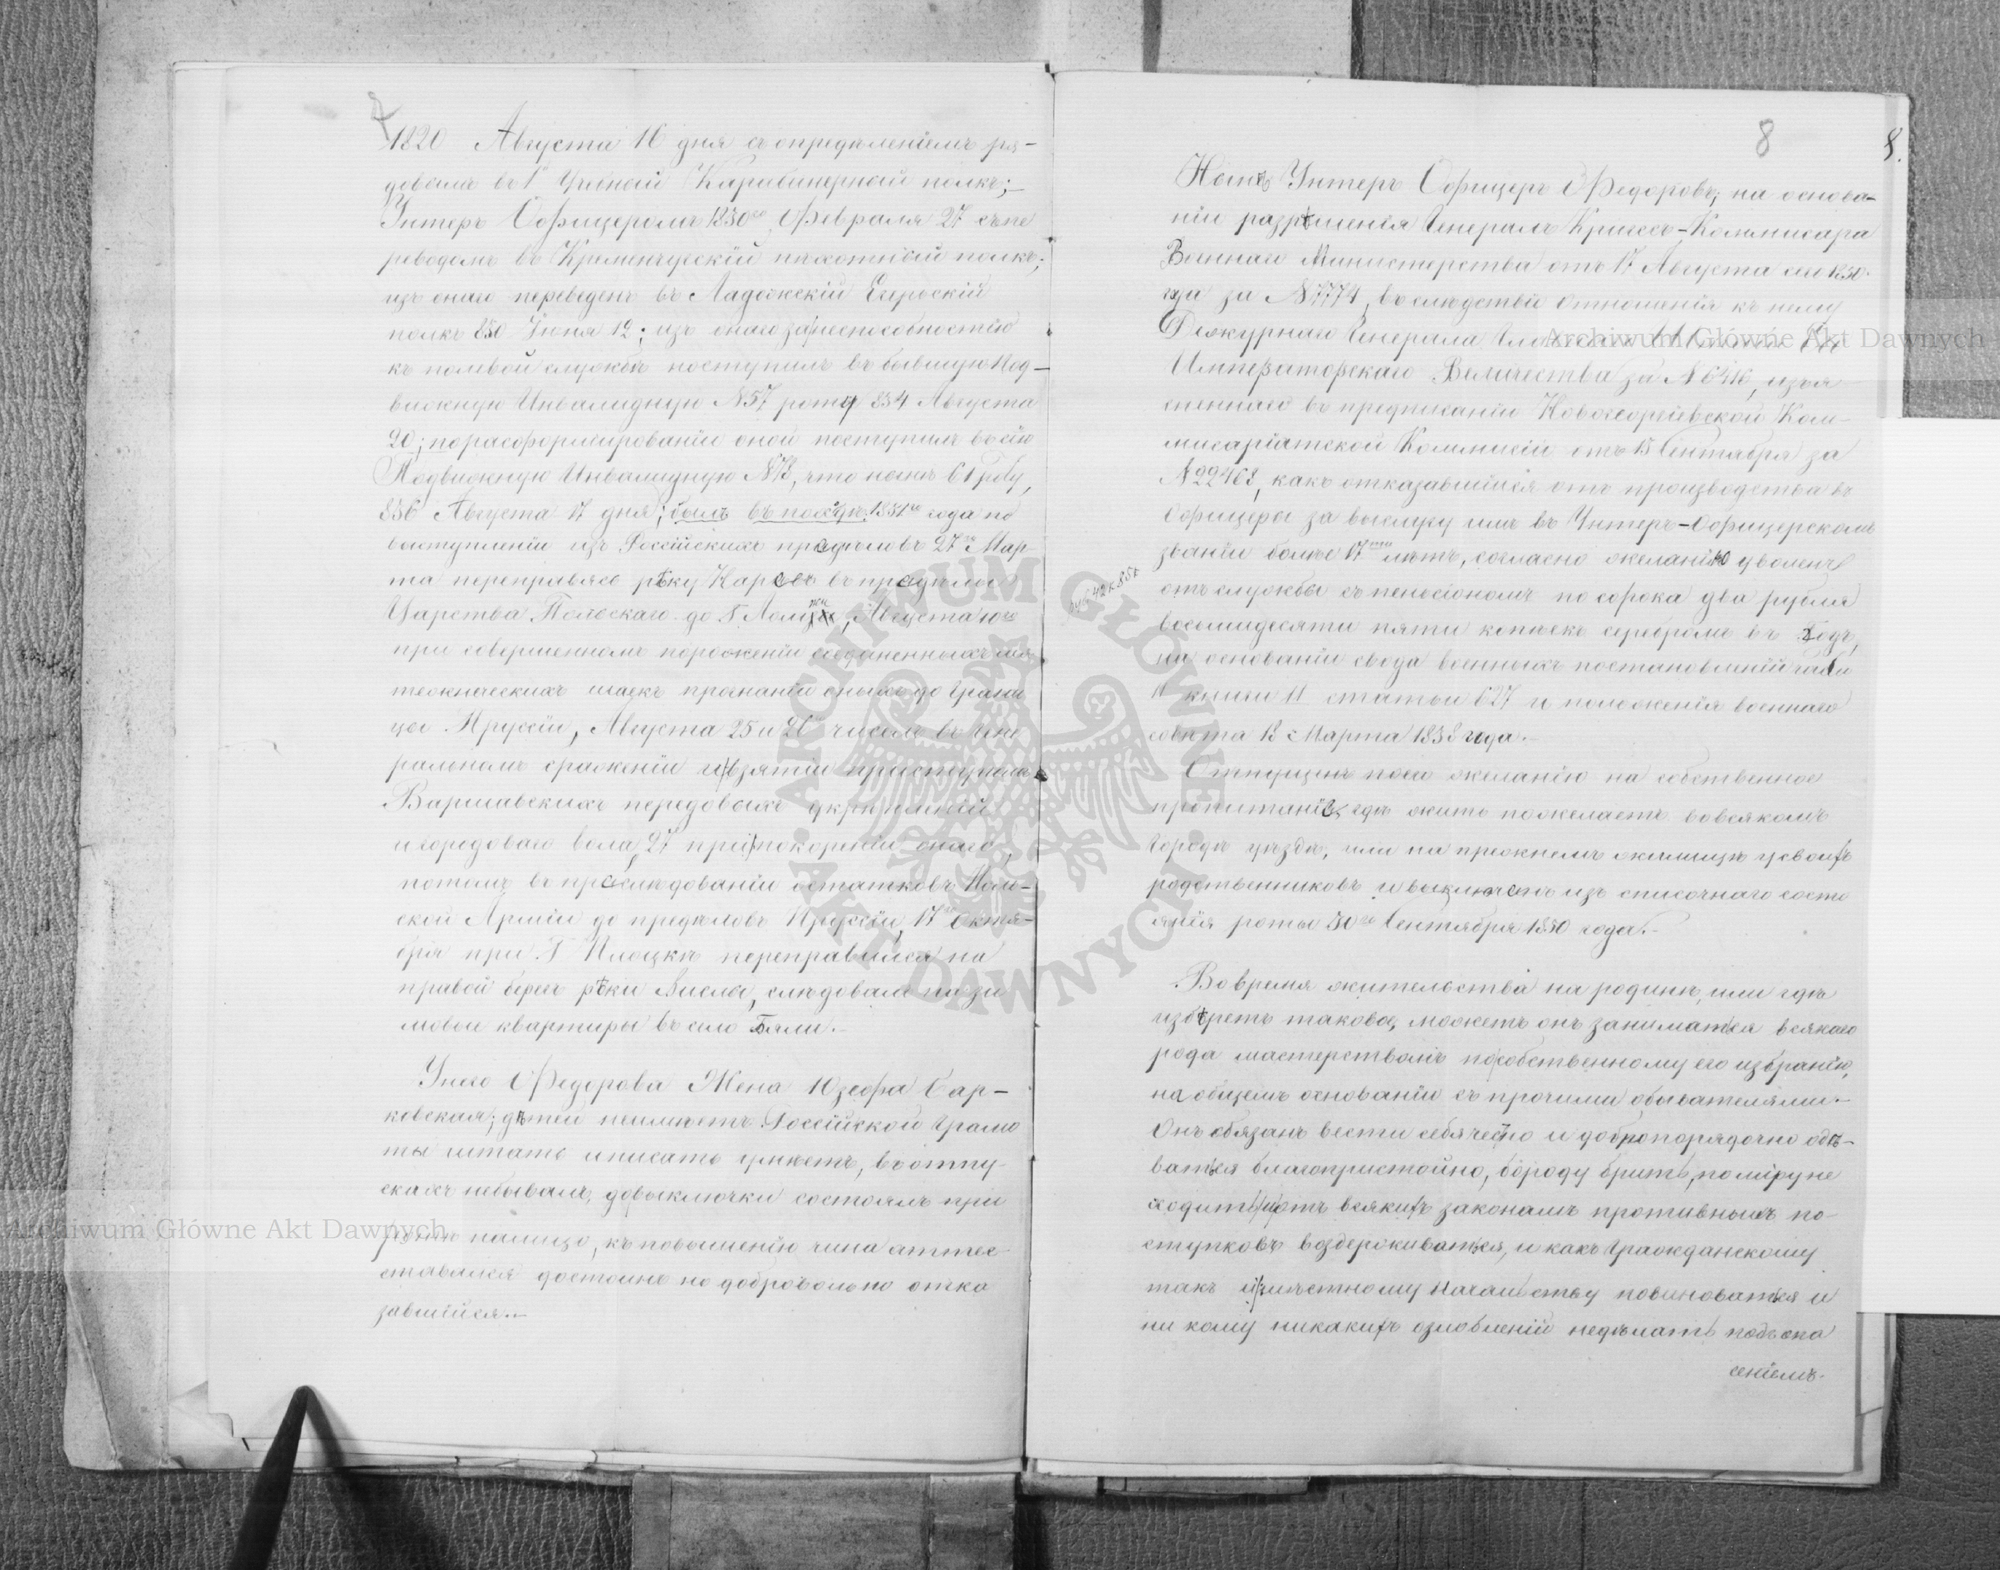 1820 Августа 16 дня съ опредѣленіемъ ря-
довымъ въ 1й Учебный Карабинерный полкъ;-
Унтеръ Офицеромъ 1830го Февраля 27 съ пе
реводомъ въ Кременчугскій пѣхотный полкъ;
изъ онаго переведенъ въ Ладожскій Егерскій
полкъ 830 Іюня 12; изъ онаго за неспособностію
къ полевой службѣ поступилъ въ бывшую Под-
вижную Инвалидную №57 роту 834 Августа
20; по расформированіи оной поступилъ въ сію
Подвижную Инвалидную № что нынѣ 61 роту,
836 Августа 17 дня; былъ въ походѣ 1831го года по
выступленіи изъ Россійскихъ предѣловъ 27го Мар-
та переправясь рѣку Наревъ въ предѣлы
Царства Польскаго до г. Августа
при совершенномъ пораженіи соединенныхъ мя
тежническихъ шаекъ прогнаніи оныхъ до грани
цы Пруссіи, Августа 25 и 26 чиселъ въ гене
ральномъ сраженіи и взятіи приступомъ
Варшавскихъ передовыхъ укрѣпленій
и городоваго вала, 27 при покореніи онаго,
потомъ въ преслѣдованіи остатковъ Поль-
ской Арміи до предѣловъ Пруссіи, 17го Октя-
бря при Г. Плоцкѣ переправился на
правой берегъ рѣки Вислы, слѣдовалъ на зи
мовыя квартиры въ село Бяли.-
У него Федорова Жена Юзефа Сар-
ковская; дѣтей неимѣетъ Россійской грамо
ты читать и писать умѣетъ, въ отпу-
скахъ небывалъ, до выключки состоялъ при
ротѣ налицо, къ повышенію чина аттес-
товался достоинъ но добровольно отка
завшійся.-
8
8.
Нынѣ Унтеръ Офицеръ Федоровъ, на основа-
ніи разрѣшенія Генералъ Кригсъ-Коммисара
Военнаго Министерства отъ 17 Августа сего 1850.
года за №7774, въ слѣдствіи отношенія къ нему
Дежурнаго Генерала Главнаго Штаба Его
Императорскаго Величества за №6416, изъя
сненнаго въ предписаніи Новогеоргіевской Ком-
мисаріатской Коммисіи отъ 15 Сентября за
№22468, какъ отказавшійся отъ производства въ
Офицеры за выслугу имъ въ Унтеръ-Офицерскомъ
званіи болѣе 17 лѣтъ, согласно желанію уволенъ
отъ службы съ пенсіономъ по сорока два рубля
восьмидесяти пяти копѣекъ серебромъ въ годъ,
на основаніи свода военныхъ постановленій части
II книги II статьи 627 и положенія военнаго
совѣта 18 Марта 1838 года.-
Отпущенъ по его желанію на собственное
пропитаніе, гдѣ жить пожелаетъ во всякомъ
городѣ уѣздѣ, или на прежнемъ жилищѣ у своихъ
родственниковъ и выключенъ изъ списочнаго состо
янія роты 30го Сентября 1850 года.-
Во время жительства на родинѣ, или гдѣ
изберетъ таковое, можетъ онъ заниматься всякаго
рода мастерствомъ по собственному его избранію,
на общемъ основаніи съ прочими обывателями.-
Онъ обязанъ вести себя честно и добропорядочно одѣ-
ваться благопристойно, бороду брить, по міру не
ходить, и отъ всякихъ законамъ противныхъ по-
ступковъ воздерживаться, и какъ гражданскому
такъ и мѣстному Начальству повиноватьсяи
ни кому никакихъ озлобленій недѣлать подъ опа
сеніемъ.